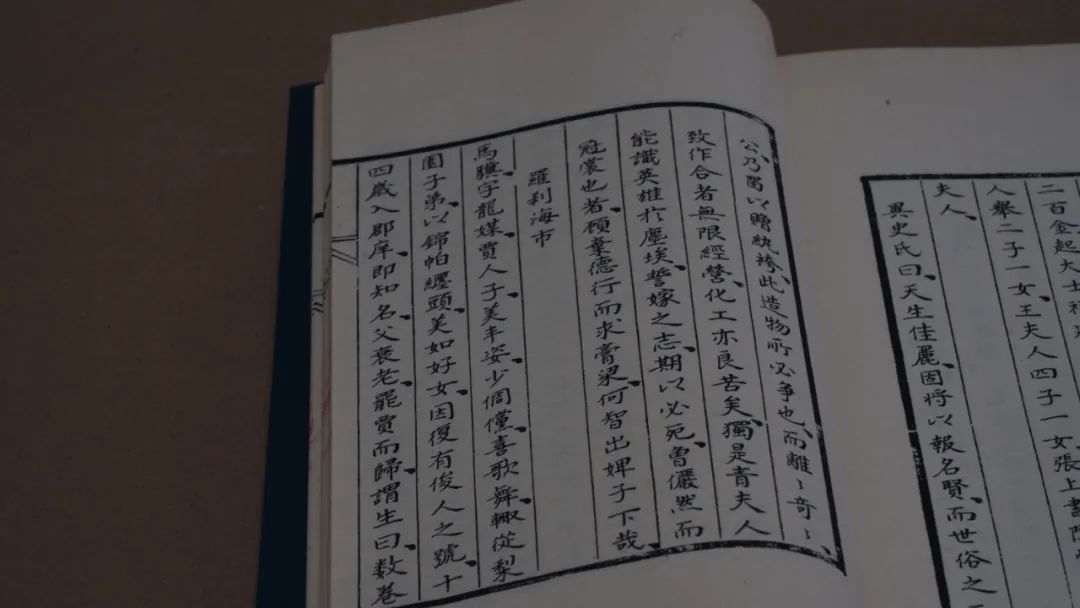 二百金起大士
人舉二子一女王夫人四子一女張上書陳
夫人
異史氏曰天生佳麗固將以報名賢而世俗之
公乃留以贈紈袴此造物所必爭也而離〻奇〻
致作合者無限經營化工亦良苦矣獨是青夫人
能識英雄於塵埃誓嫁之志期以必死曾儼然而
冠裳也者顧棄德行而求膏粱何智出婢子下哉
羅刹海市
馬驥字龍媒賈人子美丰姿少倜儻喜歌舞輒從梨
園子弟以錦帕纏頭美如好女因復有俊人之號十
四歲入郡庠即知名父衰老罷賈而歸謂生曰数卷